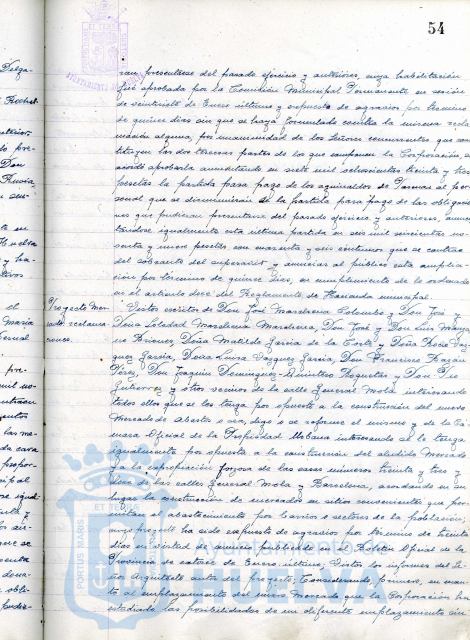 54
ran presentarse del pasado ejercicio y anteriores, cuya habilitación
fué aprobada por la Comisión Municipal Permanente en sesión
de veintisiete de Enero último y expuesta de agravios por término
de quince días sin que se haya formulado contra la misma recla-
mación alguna, por unanimidad de los Señores concurrentes que cons-
tituyen las dos terceras partes de los que componen la Corporación, se
acordó aprobarla aumentando en siete mil setecientas treinta y tres
pesetas la partida para pago de los aguinaldos de Pascuas al per-
sonal que se disminuirán de la partida para pago de las obligacio-
nes que pudieran presentarse del pasado ejercicio y anteriores, aumen-
tándose igualmente esta última partida en seis mil seiscientas no-
venta y unas pesetas con cuarenta y seis céntimos que se contrae
del sobrante del superavit y anunciar al público esta amplia-
ción por término de quince días, en cumplimiento de lo ordenado
en el artículo doce del Reglamento de Hacienda municipal.
Proyecto Mer-
cado, reclama-
ciones.
Vistos escritos de Don José Marchena Colombo y Don José y
Doña Soledad Marchena Marchena, Don José y Don Luis
Briones, Doña Matilde Garcia de la Corte y Doña Rocio Vaz-
quez Garcia, Doña Luisa Vazquez Garcia, Don Francisco Bazán
Perez, Don Joaquin Dominguez Roqueta y Don
Gutierrez y otros vecinos de la calle General Mola interesando
todos ellos que se les tenga por opuesto a la construcción del nuevo
Mercado de Abastos o sea, digo se reforme el mismo y de la Cá-
mara Oficial de la Propiedad Urbana interesando se le tenga
igualmente por opuesto a la construcción del aludido Mercado
y a la expropiación forzosa de las casas números treinta y tres y
de las calles General Mola y Barcelona, acordando en su
lugar la construcción de mercados en sitios convenientes que per-
mitan el abastecimiento por barrios o sectores de la población,
cuyo proyecto ha sido expuesto de agravios por término de treinta
días en virtud de anuncio publicado en el Boletín Oficial de la
Provincia de catorce de Enero último, Vistos los informes del Se-
ñor Arquitecto autor del proyecto; Considerando, primero, en cuan-
to al emplazamiento del nuevo Mercado que la Corporación ha
estudiado las posibilidades de un diferente emplazamiento sin
PORTUS MARIS ET
Ayuntamiento de